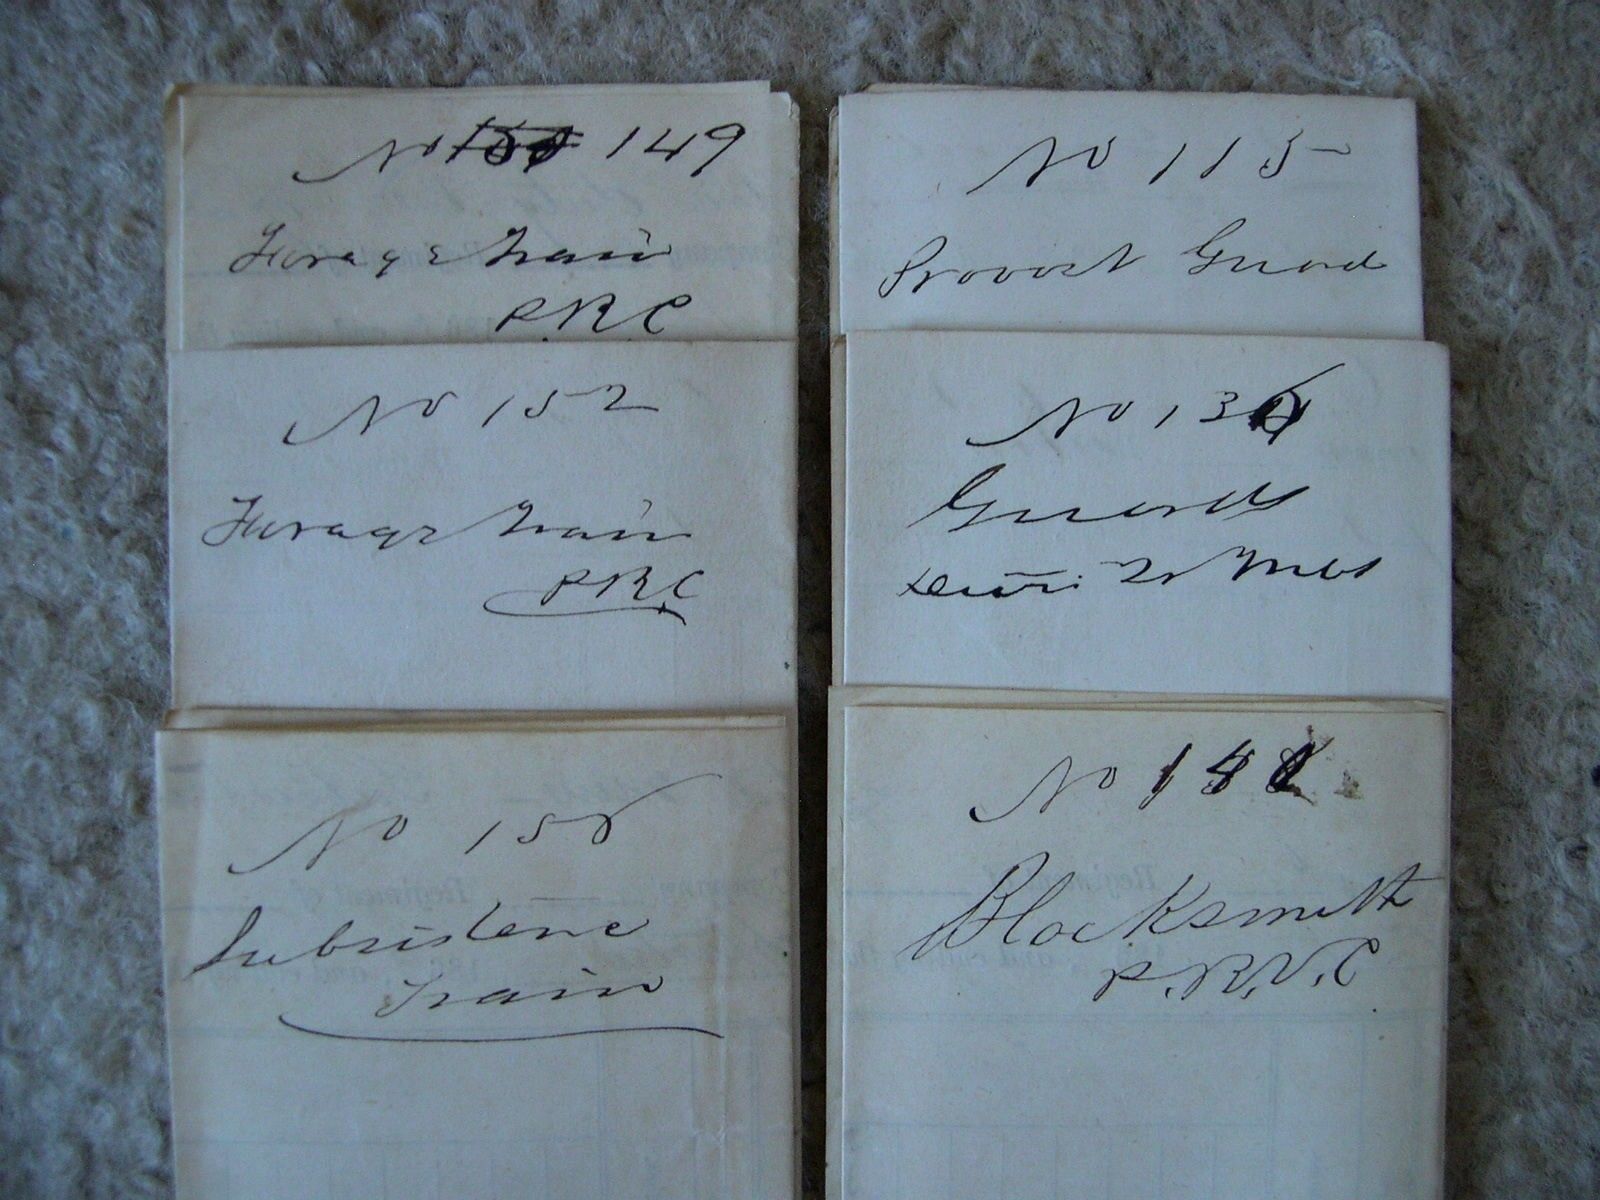 No 149
Forage Train
P.R.C
No 152
Forage Train
P.R.C
No 156
Subsistence
Train
No 115
Provost Guard
No 136
Guards
No
Blacksmith
P.R.V.C
Regiment of
Company, Regiment of
and